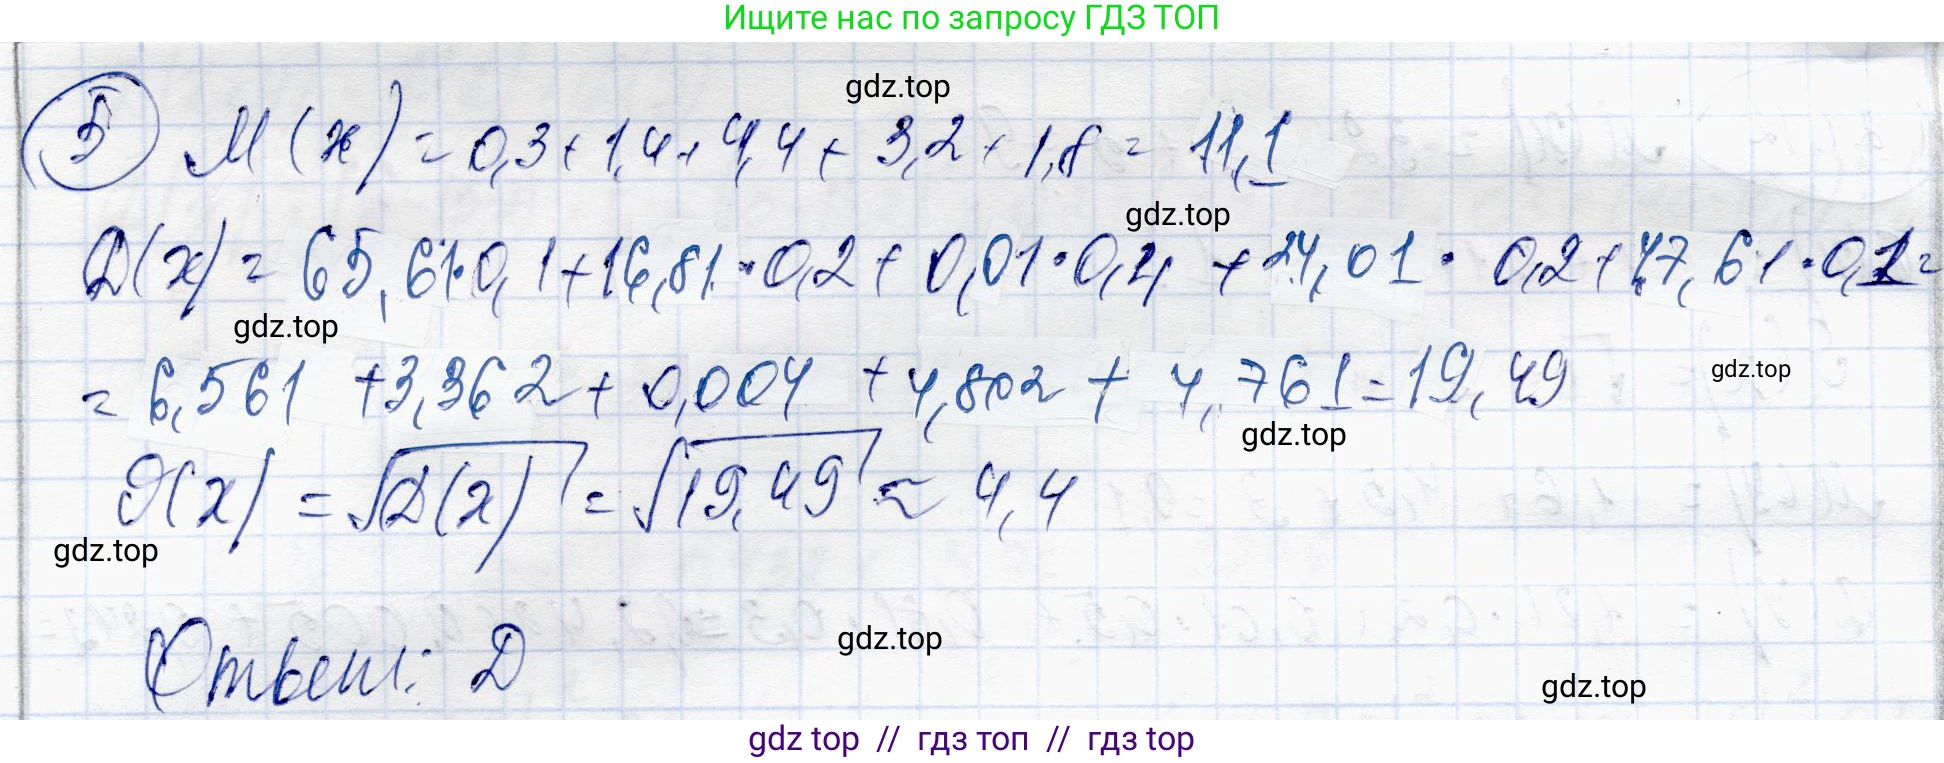 Ищите нас по запросу ГДЗ ТОП
gdz.top
5 M(x) = 0,3 + 1,4 + 4,4 + 3,2 + 1,8 = 11,1
gdz.top
D(x) = 65,61·0,1 + 16,81·0,2 + 0,01·0,4 + 24,01·0,2 + 47,61·0,1 =
gdz.top
= 6,561 + 3,362 + 0,004 + 4,802 + 4,761 = 19,49
gdz.top
gdz.top
σ(x) = √D(x) = √19,49 ≈ 4,4
gdz.top
Ответ: D
gdz.top
gdz.top
gdz top // гдз топ // gdz top